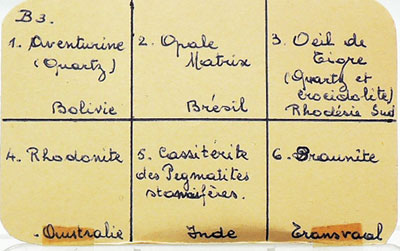 B3.
1. Aventurine
(Quartz)
Bolivie
2. Opale
Matrix
Brésil
3. Oeil de
Tigre
(Quartz et
crocidolite)
Rhodésie Sud
4. Rhodonite
Australie
5. Cassitérite
des Pegmatites
stannifères.
Inde
6. Braunite
Transvaal